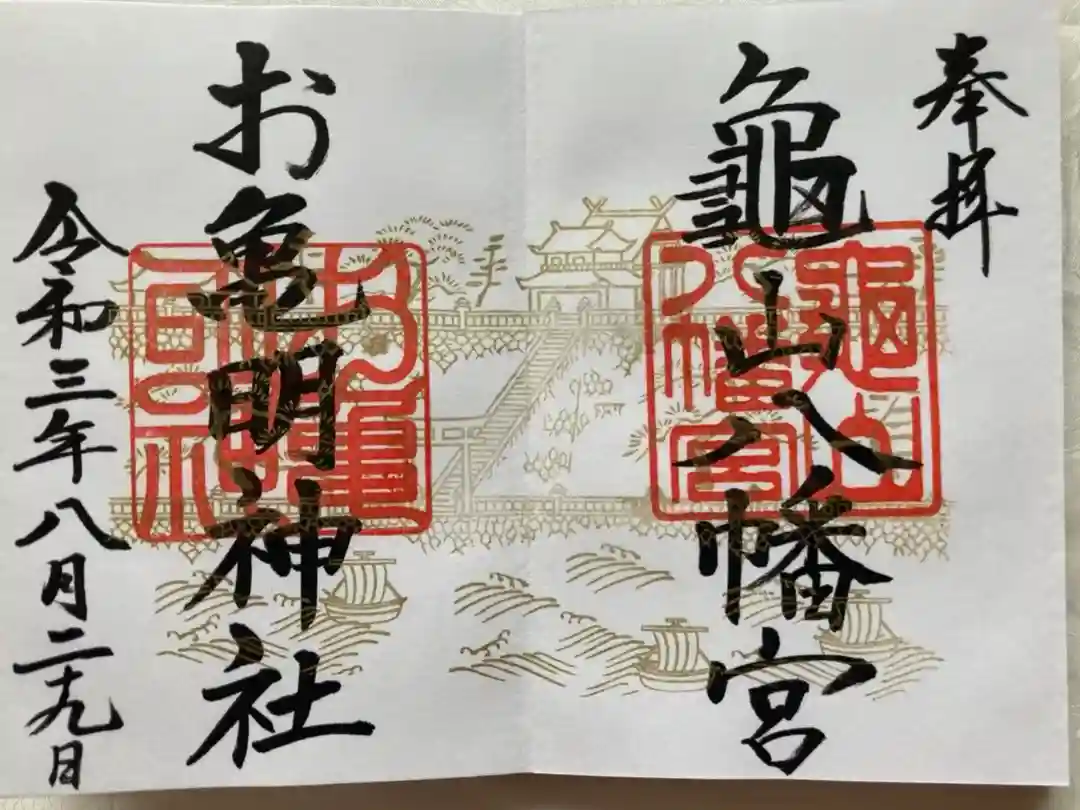 奉拝
龜山八幡宮
お亀明神社
令和三年八月二十九日
龜山
八幡宮